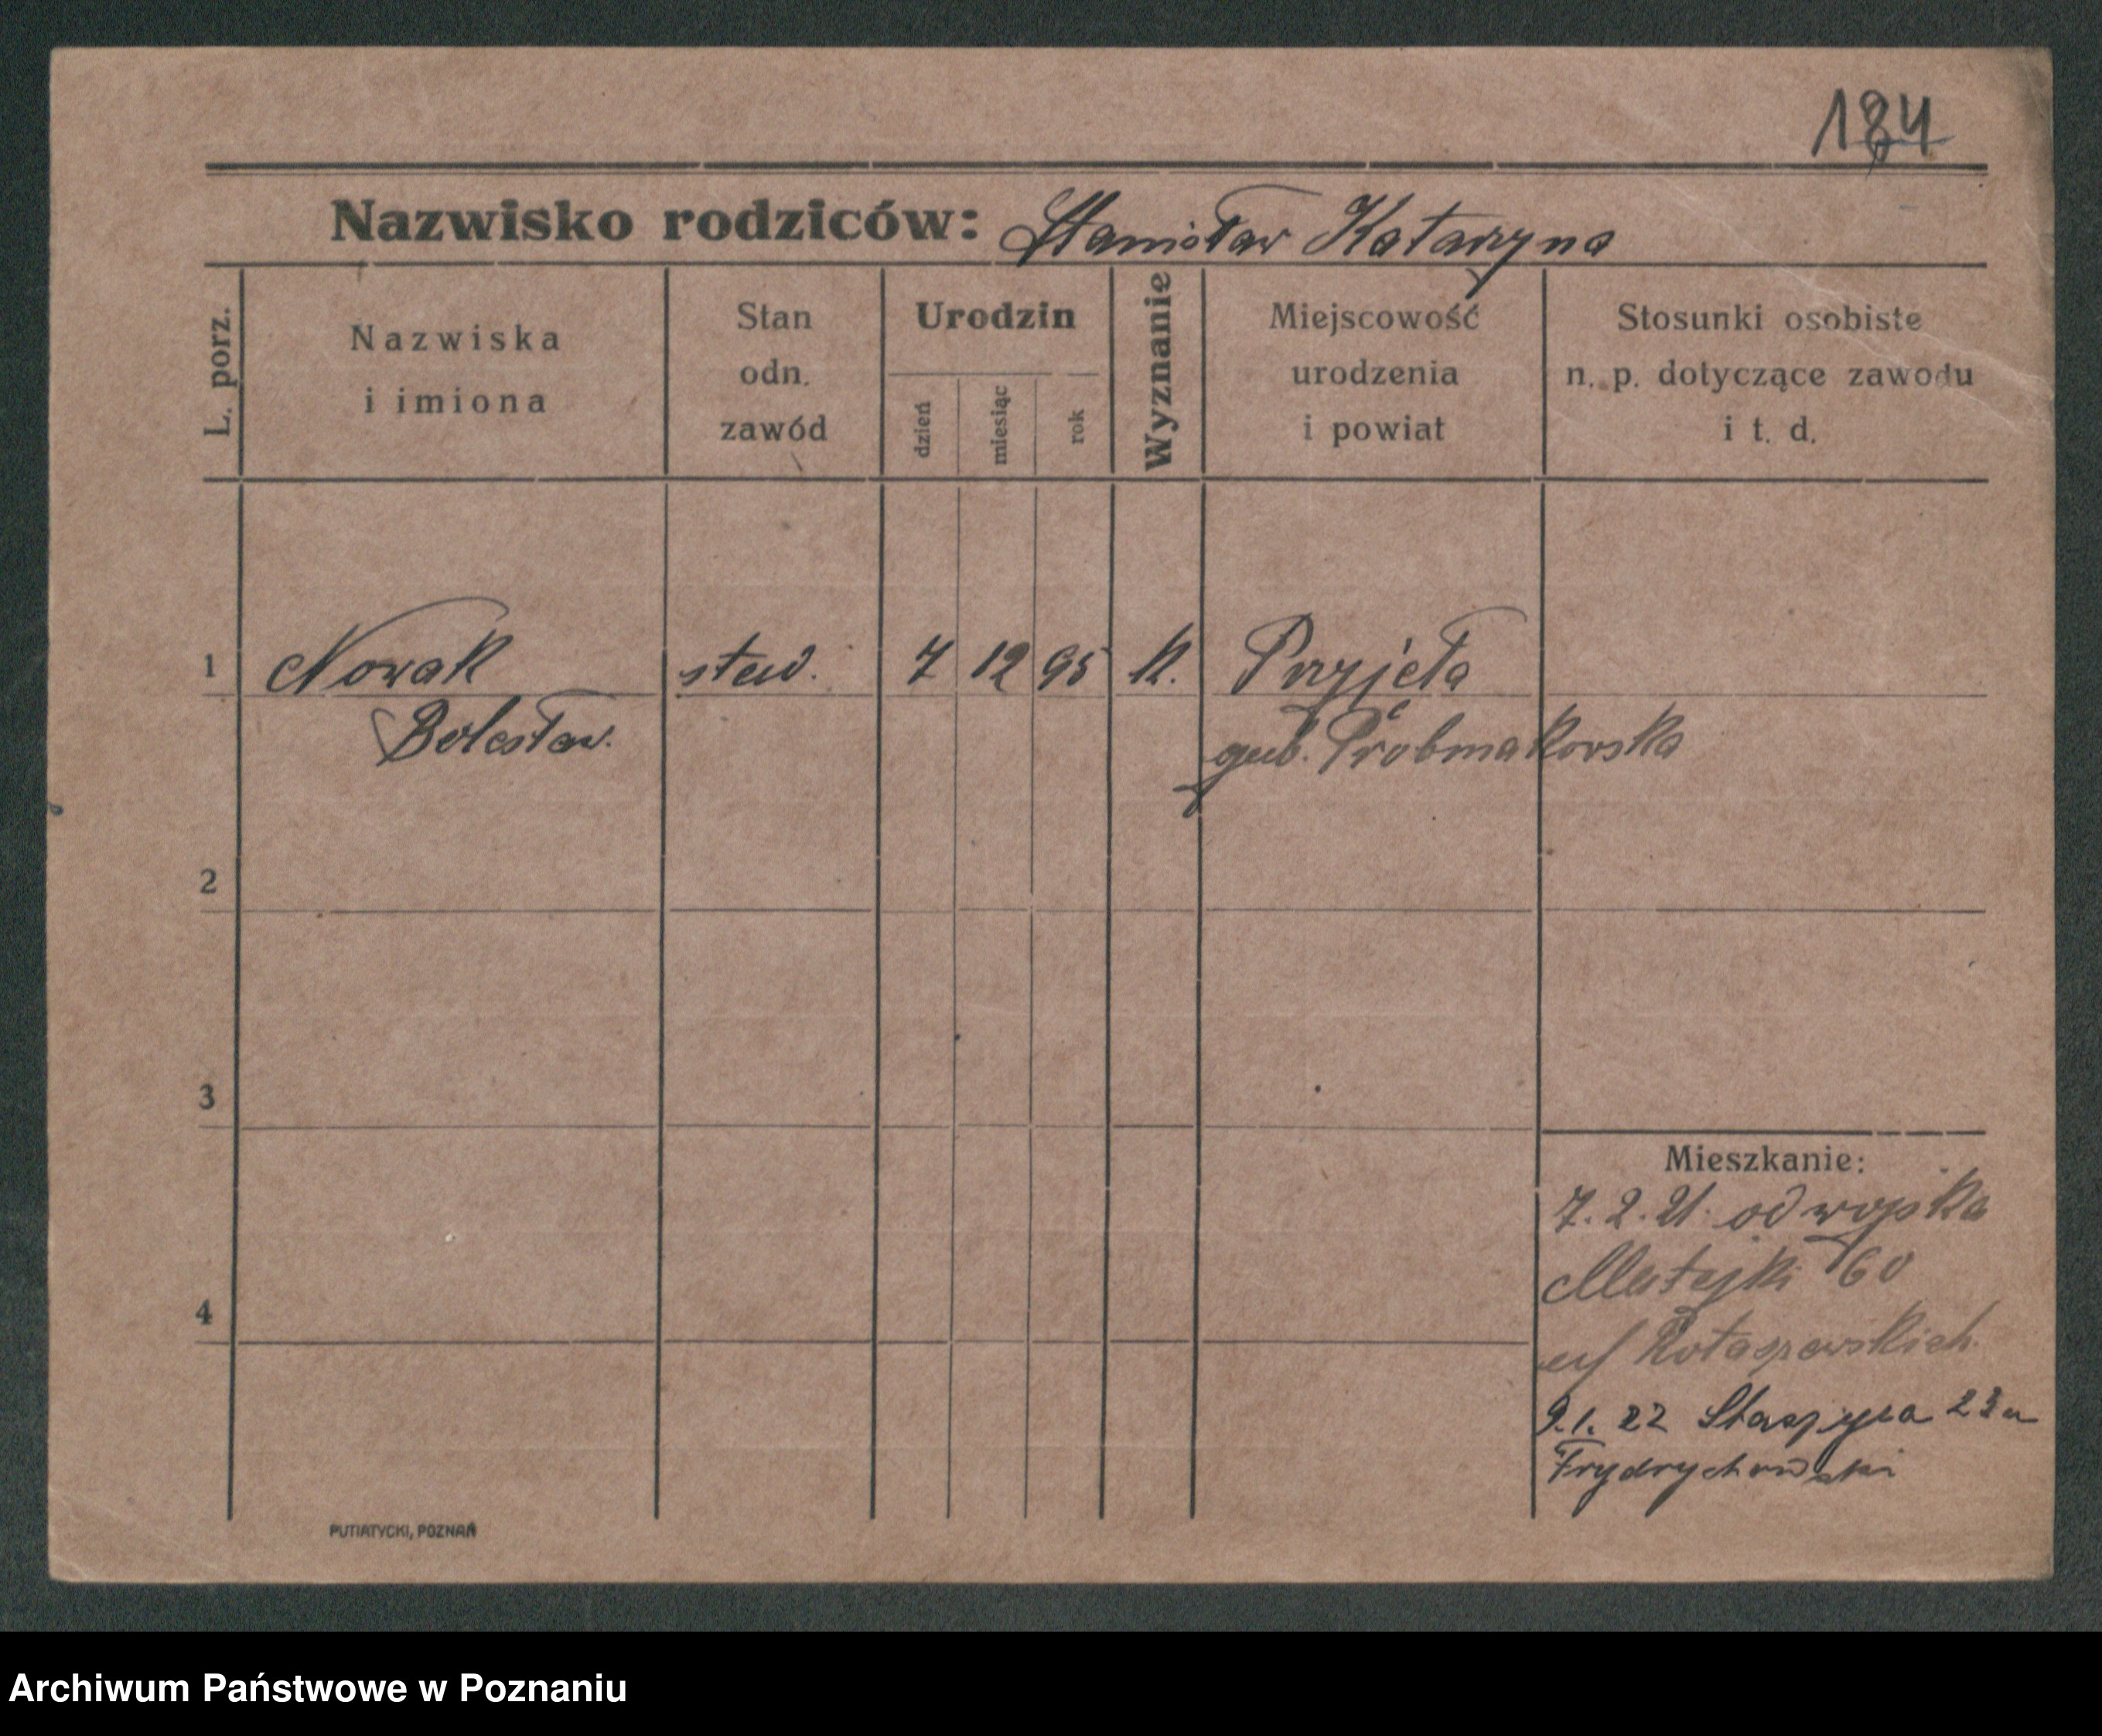 184
Nazwisko rodziców: Stanisław Katarzyna
L. porz.
Nazwiska
i imiona
Stan
odn.
zawód
Urodzin
dzień
miesiąc
rok
Wyznanie
Miejscowość
urodzenia
i powiat
Stosunki osobiste
n. p. dotyczące zawodu
i t. d.
1 Nowak 7 12 95 k.
Bolesław.
gub.
2
3
Mieszkanie:
7. 2. 21. od wojska
4
Matejki 60
9.1. 22 Staszyca 23a
Frydrychowski
PUTIATYCKI, POZNAŃ
Archiwum Państwowe w Poznaniu